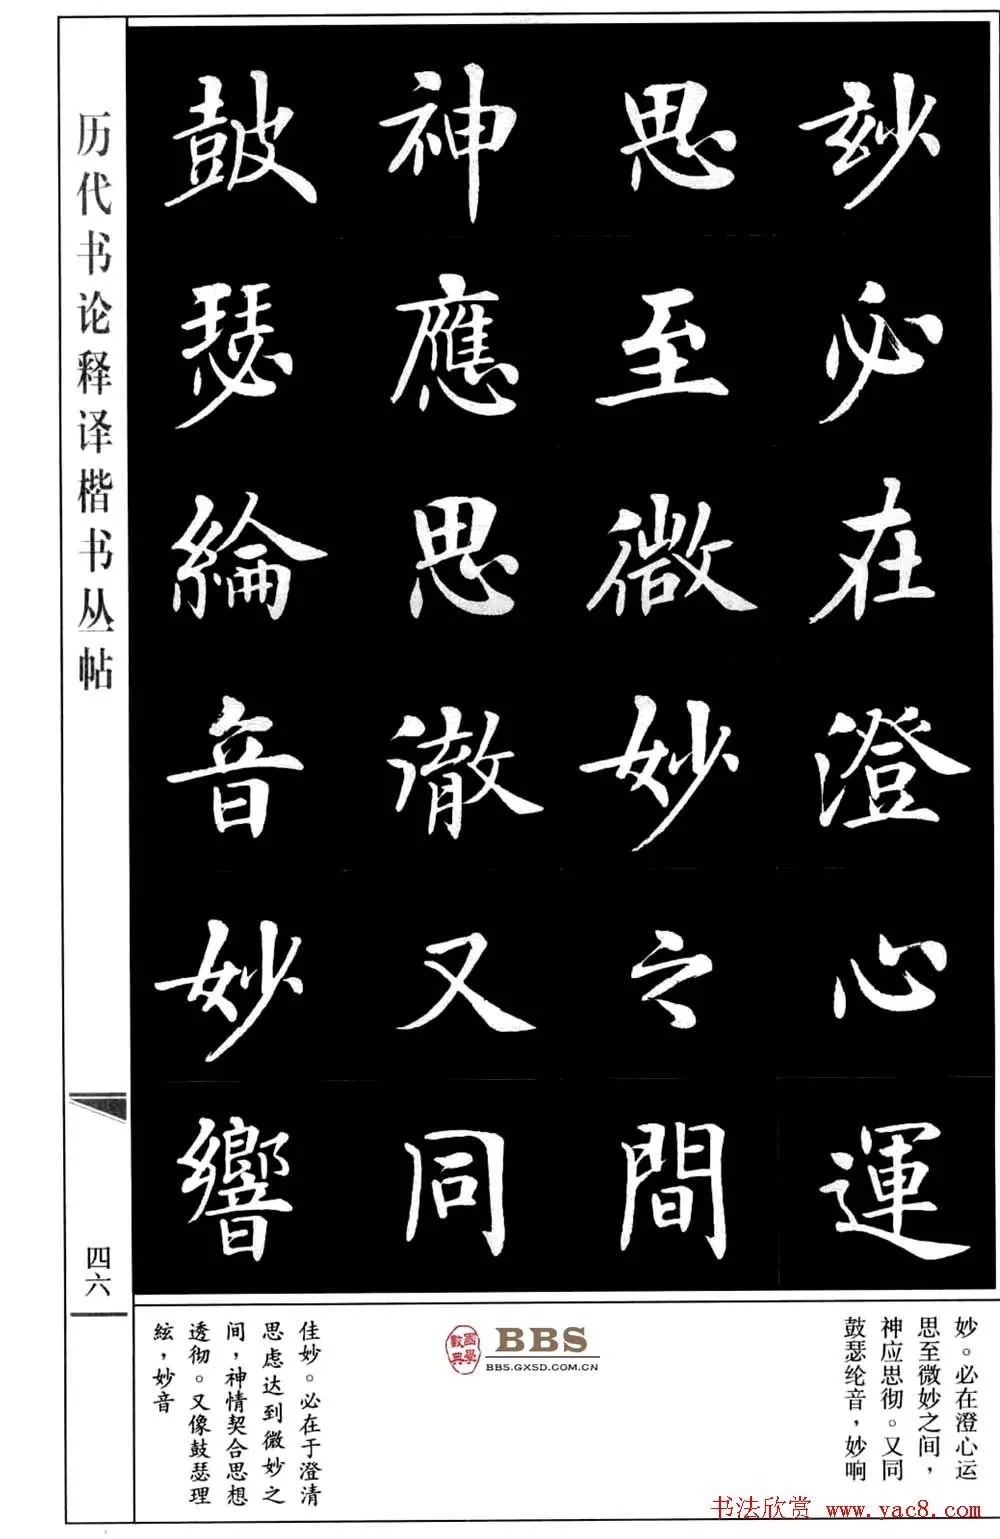 玅必在澄心運
思至微妙之間
神應思徹又同
鼓瑟綸音妙響
历代书论释译楷书丛帖
四六
妙。必在澄心运
思至微妙之间，
神应思彻。又同
鼓瑟纶音，妙响
國學
數典
BBS
BBS.GXSD.COM.CN
佳妙。必在于澄清
思虑达到微妙之
间，神情契合思想
透彻。又像鼓瑟理
絃，妙音
书法欣赏 www.yac8.com